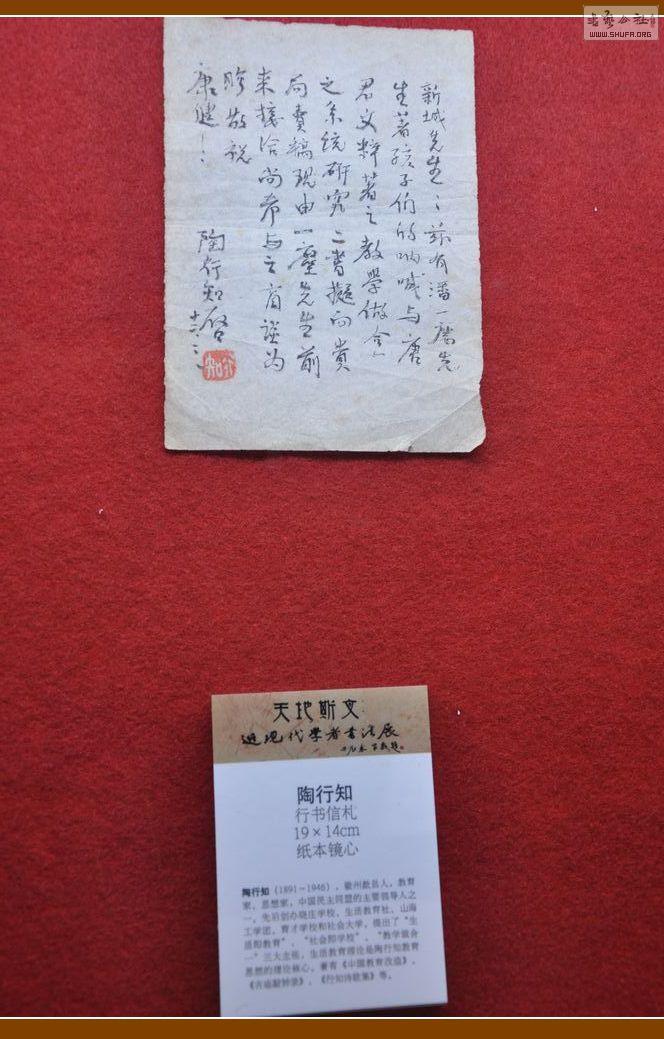 書藝公社
WWW.SHUFA.ORG
新城先生：茲有潘一塵先
生著孩子们的呐喊与唐
君文粹著之教學做合一
之系統研究二書擬向貴
局賣稿現由一塵先生前
来接洽尚希与之面談为
盼敬祝
康健！
陶行知啓
天地斯文
近现代学者书法展
陶行知
行书信札
19×14cm
纸本镜心
陶行知（1891-1946），徽州歙县人，教育
家、思想家，中国民主同盟的主要领导人之
一。先后创办晓庄学校、生活教育社、山海
工学团、育才学校和社会大学，提出了“生
活即教育”、“社会即学校”、“教学做合
一”三大主张，生活教育理论是陶行知教育
思想的理论核心。著有《中国教育改造》、
《古庙敲钟录》、《行知诗歌集》等。